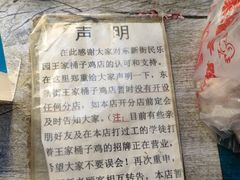 声明
在此感谢大家对东新街民乐
园王家桶子鸡店的认可和支持。
在这里郑重给大家声明一下，东
新街王家桶子鸡店暂时没有开设
任何分店，如本店开分店前定会
及时告知大家。（注：目前有些亲
朋好友及在本店打过工的学徒打
着王家桶子鸡的招牌正在营业，
希望大家不要误会！再次重申，
顾客相互转告，本店暂